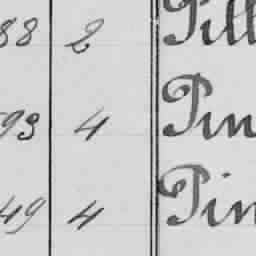 88 2 Pill
93 4 Pin
49 4 Pin